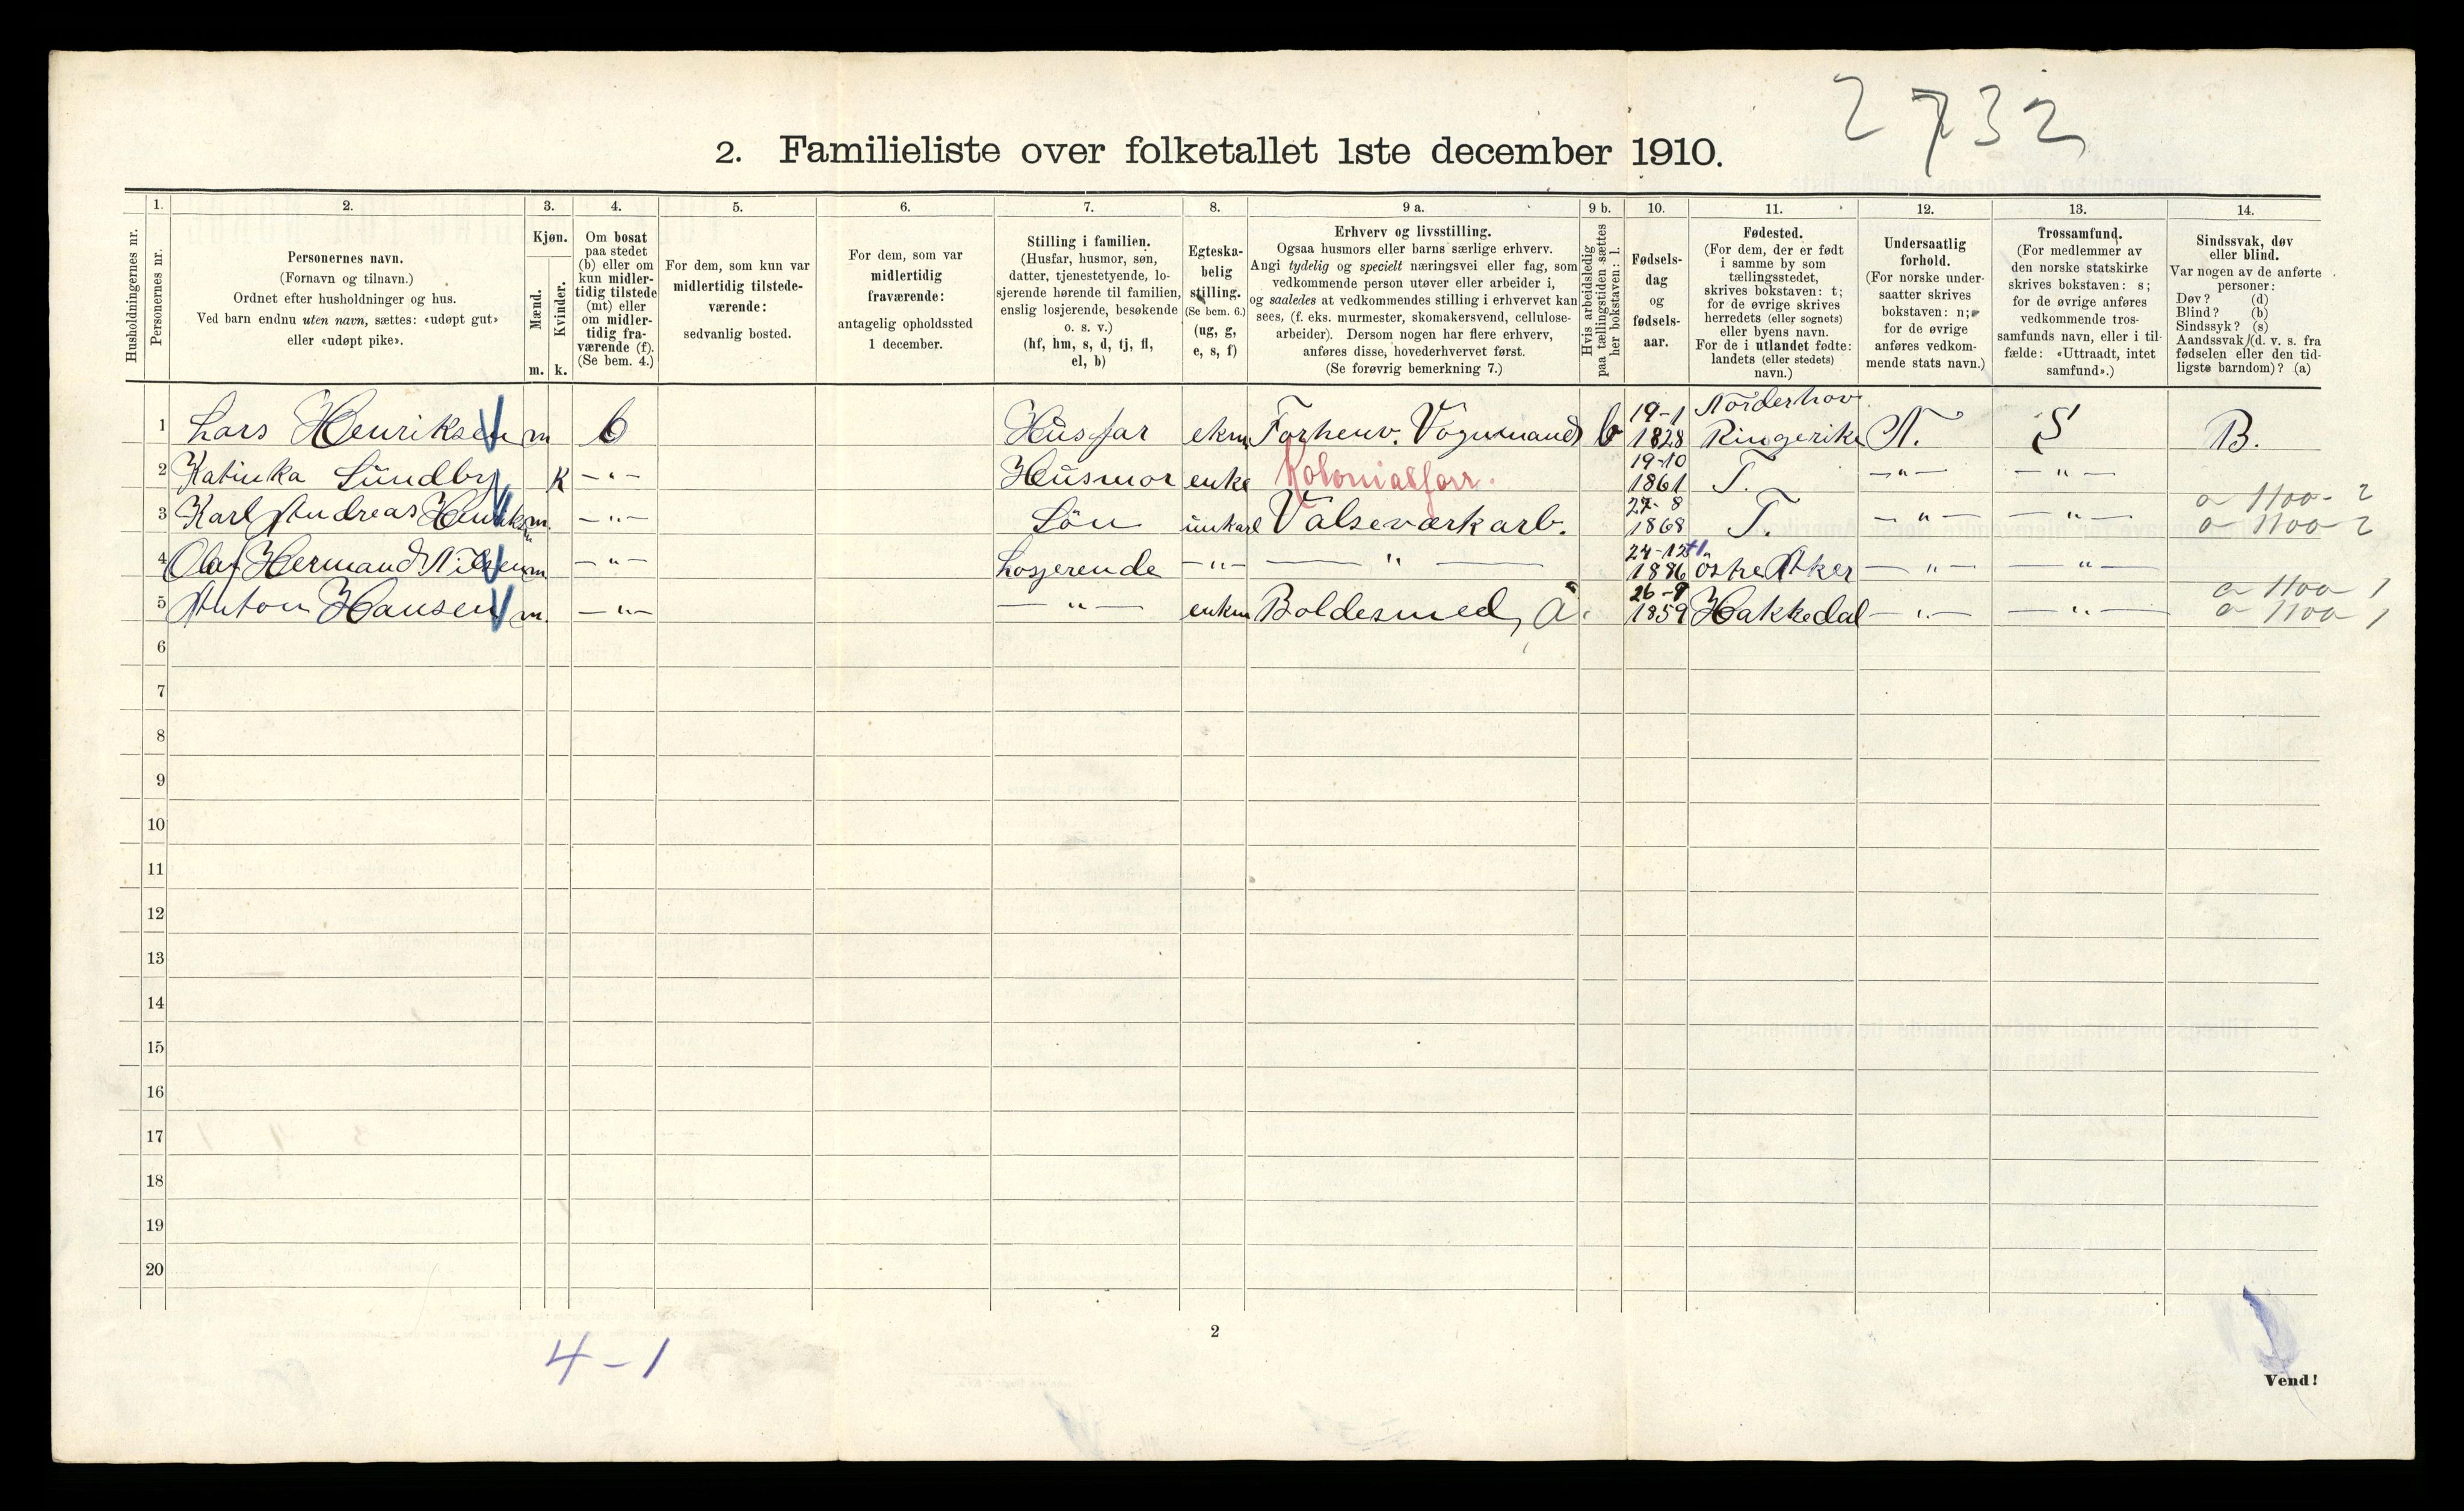 2732
2. Familieliste over folketallet 1ste december 1910.
Husholdningernes nr.
1.
Personernes nr.
2.
Personernes navn.
(Fornavn og tilnavn.)
Ordnet efter husholdninger og hus.
Ved barn endnu uten navn, sættes: «udøpt gut»
eller «udøpt pike».
3.
Kjøn.
Mænd.
Kvinder.
m. k.
4.
Om bosat
paa stedet
(b) eller om
kun midler-
tidig tilstede
(mt) eller
om midler-
tidig fra-
værende (f).
(Se bem. 4.)
5.
For dem, som kun var
midlertidig tilstede-
værende:
sedvanlig bosted.
6.
For dem, som var
midlertidig
fraværende:
antagelig opholdssted
1 december.
7.
Stilling i familien.
(Husfar, husmor, søn,
datter, tjenestetyende, lo-
sjerende hørende til familien,
enslig losjerende, besøkende
o. s. v.)
(hf, hm, s, d, tj, fl,
el, b)
8.
Egteska-
belig
stilling.
(Se bem. 6.)
(ug, g,
e, s, f)
9 a.
Erhverv og livsstilling.
Ogsaa husmors eller barns særlige erhverv.
Angi tydelig og specielt næringsvei eller fag, som
vedkommende person utøver eller arbeider i,
og saaledes at vedkommendes stilling i erhvervet kan
sees, (f. eks. murmester, skomakersvend, cellulose-
arbeider). Dersom nogen har flere erhverv,
anføres disse, hovederhvervet først.
(Se forøvrig bemerkning 7.)
9 b.
Hvis arbeidsledig
paa tællingstiden sættes
her bokstaven: l.
10.
Fødsels-
dag
og
fødsels-
aar.
11.
Fødested.
(For dem, der er født
i samme by som
tællingsstedet,
skrives bokstaven: t;
for de øvrige skrives
herredets (eller sognets)
eller byens navn.
For de i utlandet fødte:
landets (eller stedets)
navn.)
12.
Undersaatlig
forhold.
(For norske under-
saatter skrives
bokstaven: n;
for de øvrige
anføres vedkom-
mende stats navn.)
13.
Trossamfund.
(For medlemmer av
den norske statskirke
skrives bokstaven: s;
for de øvrige anføres
vedkommende tros-
samfunds navn, eller i til-
fælde: «Uttraadt, intet
samfund».)
14.
Sindssvak, døv
eller blind.
Var nogen av de anførte
personer:
Døv? (d)
Blind? (b)
Sindssyk? (s)
Aandssvak (d. v. s. fra
fødselen eller den tid-
ligste barndom)? (a)
1 Lars Henriksen m b Husfar ekm Forhenv. Vognmand b 19-1 1828 Norderhov Ringerike N. S B.
2 Katinka Lundby K -"- Husmor enke Kolonialforr. 19-10 1861 T. -"- -"-
3 Karl Andreas Henriksen m. -"- Sön unkarl Valseværkarb. 27-8 1868 T. -"- -"-
4 Olaf Hermand Nilsen m -"- Losjerende -"- -"- 24-12 1886 östre Aker -"- -"-
5 Anton Hansen m. -"- -"- enkm Boldesmed, 26-9 1859 Hakkedal -"- -"-
6
7
8
9
10
11
12
13
14
15
16
17
18
19
20
4-1
2
Vend!